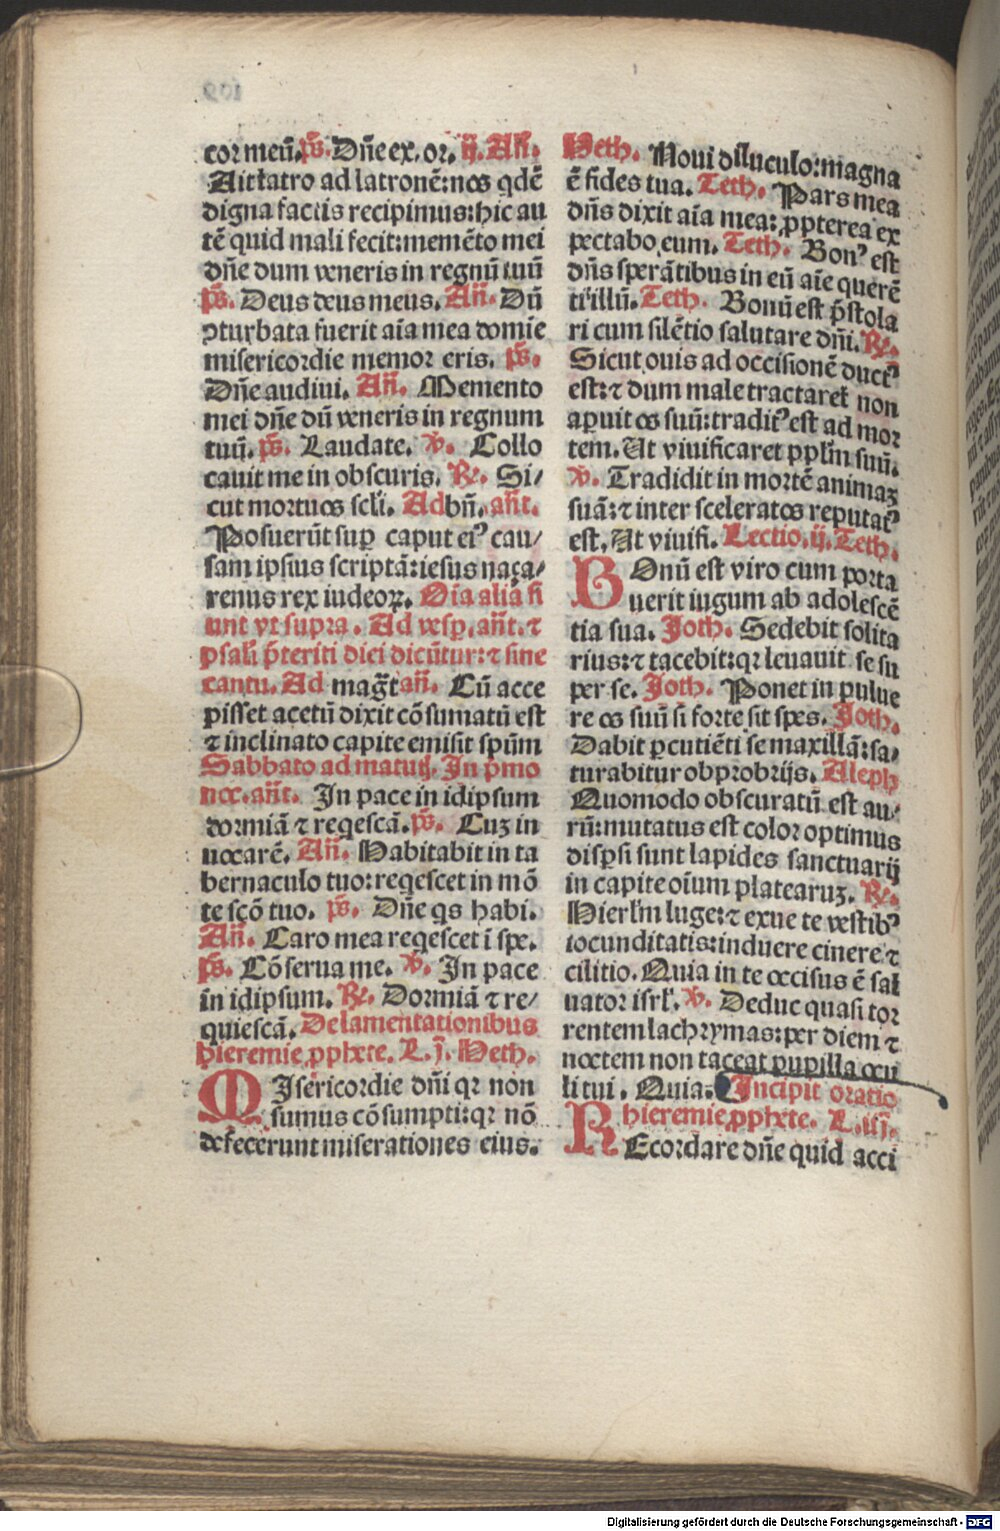 cor meū. ps̄. Dn̄e ex. or. ij. An̄.
Ait latro ad latronē: nos qdē
digna factis recipimus: hic au
tē quid mali fecit: memēto mei
dn̄e dum veneris in regnū tuū
ps̄. Deus deus meus. An̄. Dū
ꝯturbata fuerit aīa mea domīe
misericordie memor eris. ps̄.
Dn̄e audiui. An̄. Memento
mei dn̄e dū veneris in regnum
tuū. ps̄. Laudate. ℣. Collo
cauit me in obscuris. ℟. Si/
cut mortuos scl̄i. Ad bn̄. an̄t.
Posuerūt suꝑ caput eiꝰ cau/
sam ipsius scriptā: iesus naça/
renus rex iudeoꝝ. Oīa alia fi
unt vt supra. Ad vesꝑ. an̄t. ⁊
psal̄i p̄teriti diei dicūtur: ⁊ sine
cantu. Ad magt̄ an̄. Cū acce
pisset acetū dixit cōsumatū est
⁊ inclinato capite emisit spūm
Sabbato ad matutꝭ. In pͥmo
noc. an̄t. In pace in idipsum
dormiā ⁊ reqescā. ps̄. Cuꝫ in
uocarē. An̄. Habitabit in ta
bernaculo tuo: reqescet in mō
te scō tuo. ps̄. Dn̄e qs habi.
An̄. Caro mea reqescet ī spe.
ps̄. Cōserua me. ℣. In pace
in idipsum. ℟. Dormiā ⁊ re/
quiescā. De lamentationibus
hieremie ꝓphete. L. j. Heth.
MIsericordie dn̄i qꝛ non
sumus cōsumpti: qꝛ nō
defecerunt miserationes eius.
Heth. Noui diluculo: magna
ē fides tua. Teth. Pars mea
dn̄s dixit aīa mea: ꝓpterea ex
pectabo eum. Teth. Bonꝰ est
dn̄s sperātibus in eū aīe querē
ti illū. Teth. Bonū est p̄stola
ri cum silētio salutare dn̄i. ℟.
Sicut ouis ad occisionē ductꝰ
est: ⁊ dum male tractaret̄ non
aꝑuit os suū: traditꝰ est ad mor
tem. Ut viuificaret ppl̄m suū.
℣. Tradidit in mortē animaꝫ
suā: ⁊ inter sceleratos reputatꝰ
est. Ut viuifi. Lectio. ij. Teth.
BOnū est viro cum porta
uerit iugum ab adolescē
tia sua. Joth. Sedebit solita
rius: ⁊ tacebit: qꝛ leuauit se su
per se. Joth. Ponet in pulue
re os suū si forte sit spes. Joth.
Dabit ꝑcutiēti se maxillā: sa/
turabitur obprobrijs. Aleph
Quomodo obscuratū est au/
rū: mutatus est color optimus
disꝑsi sunt lapides sanctuarij
in capite oīum platearuꝫ. ℟.
Hierl̄m luge: ⁊ exue te vestibꝰ
iocunditatis: induere cinere ⁊
cilitio. Quia in te occisus ē sal
uator isrl̄. ℣. Deduc quasi tor
rentem lachrymas: per diem ⁊
noctem non taceat pupilla ocu
li tui. Quia. Incipit oratio
hieremie ꝓphete. L. iij.
REcordare dn̄e quid acci
Digitalisierung gefördert durch die Deutsche Forschungsgemeinschaft - DFG